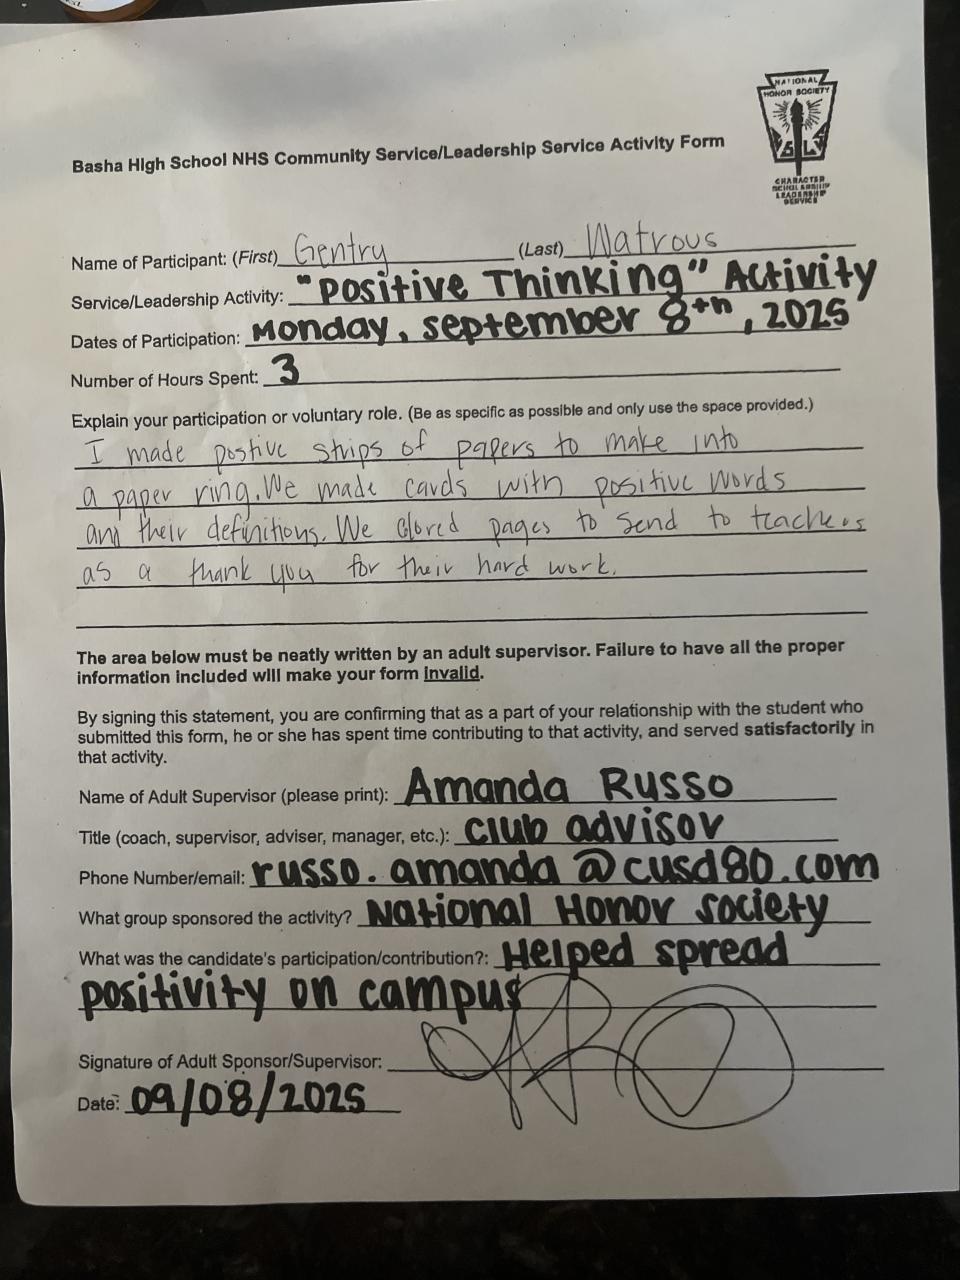 NATIONAL
HONOR SOCIETY
CHARACTER
SCHOLARSHIP
LEADERSHIP
SERVICE
Basha High School NHS Community Service/Leadership Service Activity Form
Name of Participant: (First) Gentry (Last) Watrous
Service/Leadership Activity: "Positive Thinking" Activity
Dates of Participation: Monday, september 8th, 2025
Number of Hours Spent: 3
Explain your participation or voluntary role. (Be as specific as possible and only use the space provided.)
I made postive strips of papers to make into
a paper ring. We made cards with positive words
and their definitions. We colored pages to send to teachers
as a thank you for their hard work.
The area below must be neatly written by an adult supervisor. Failure to have all the proper
information included will make your form invalid.
By signing this statement, you are confirming that as a part of your relationship with the student who
submitted this form, he or she has spent time contributing to that activity, and served satisfactorily in
that activity.
Name of Adult Supervisor (please print): Amanda Russo
Title (coach, supervisor, adviser, manager, etc.): club advisor
Phone Number/email: russo.amanda@cusd80.com
What group sponsored the activity? National Honor Society
What was the candidate's participation/contribution?: Helped spread
positivity on campus
Signature of Adult Sponsor/Supervisor:
Date: 09/08/2025